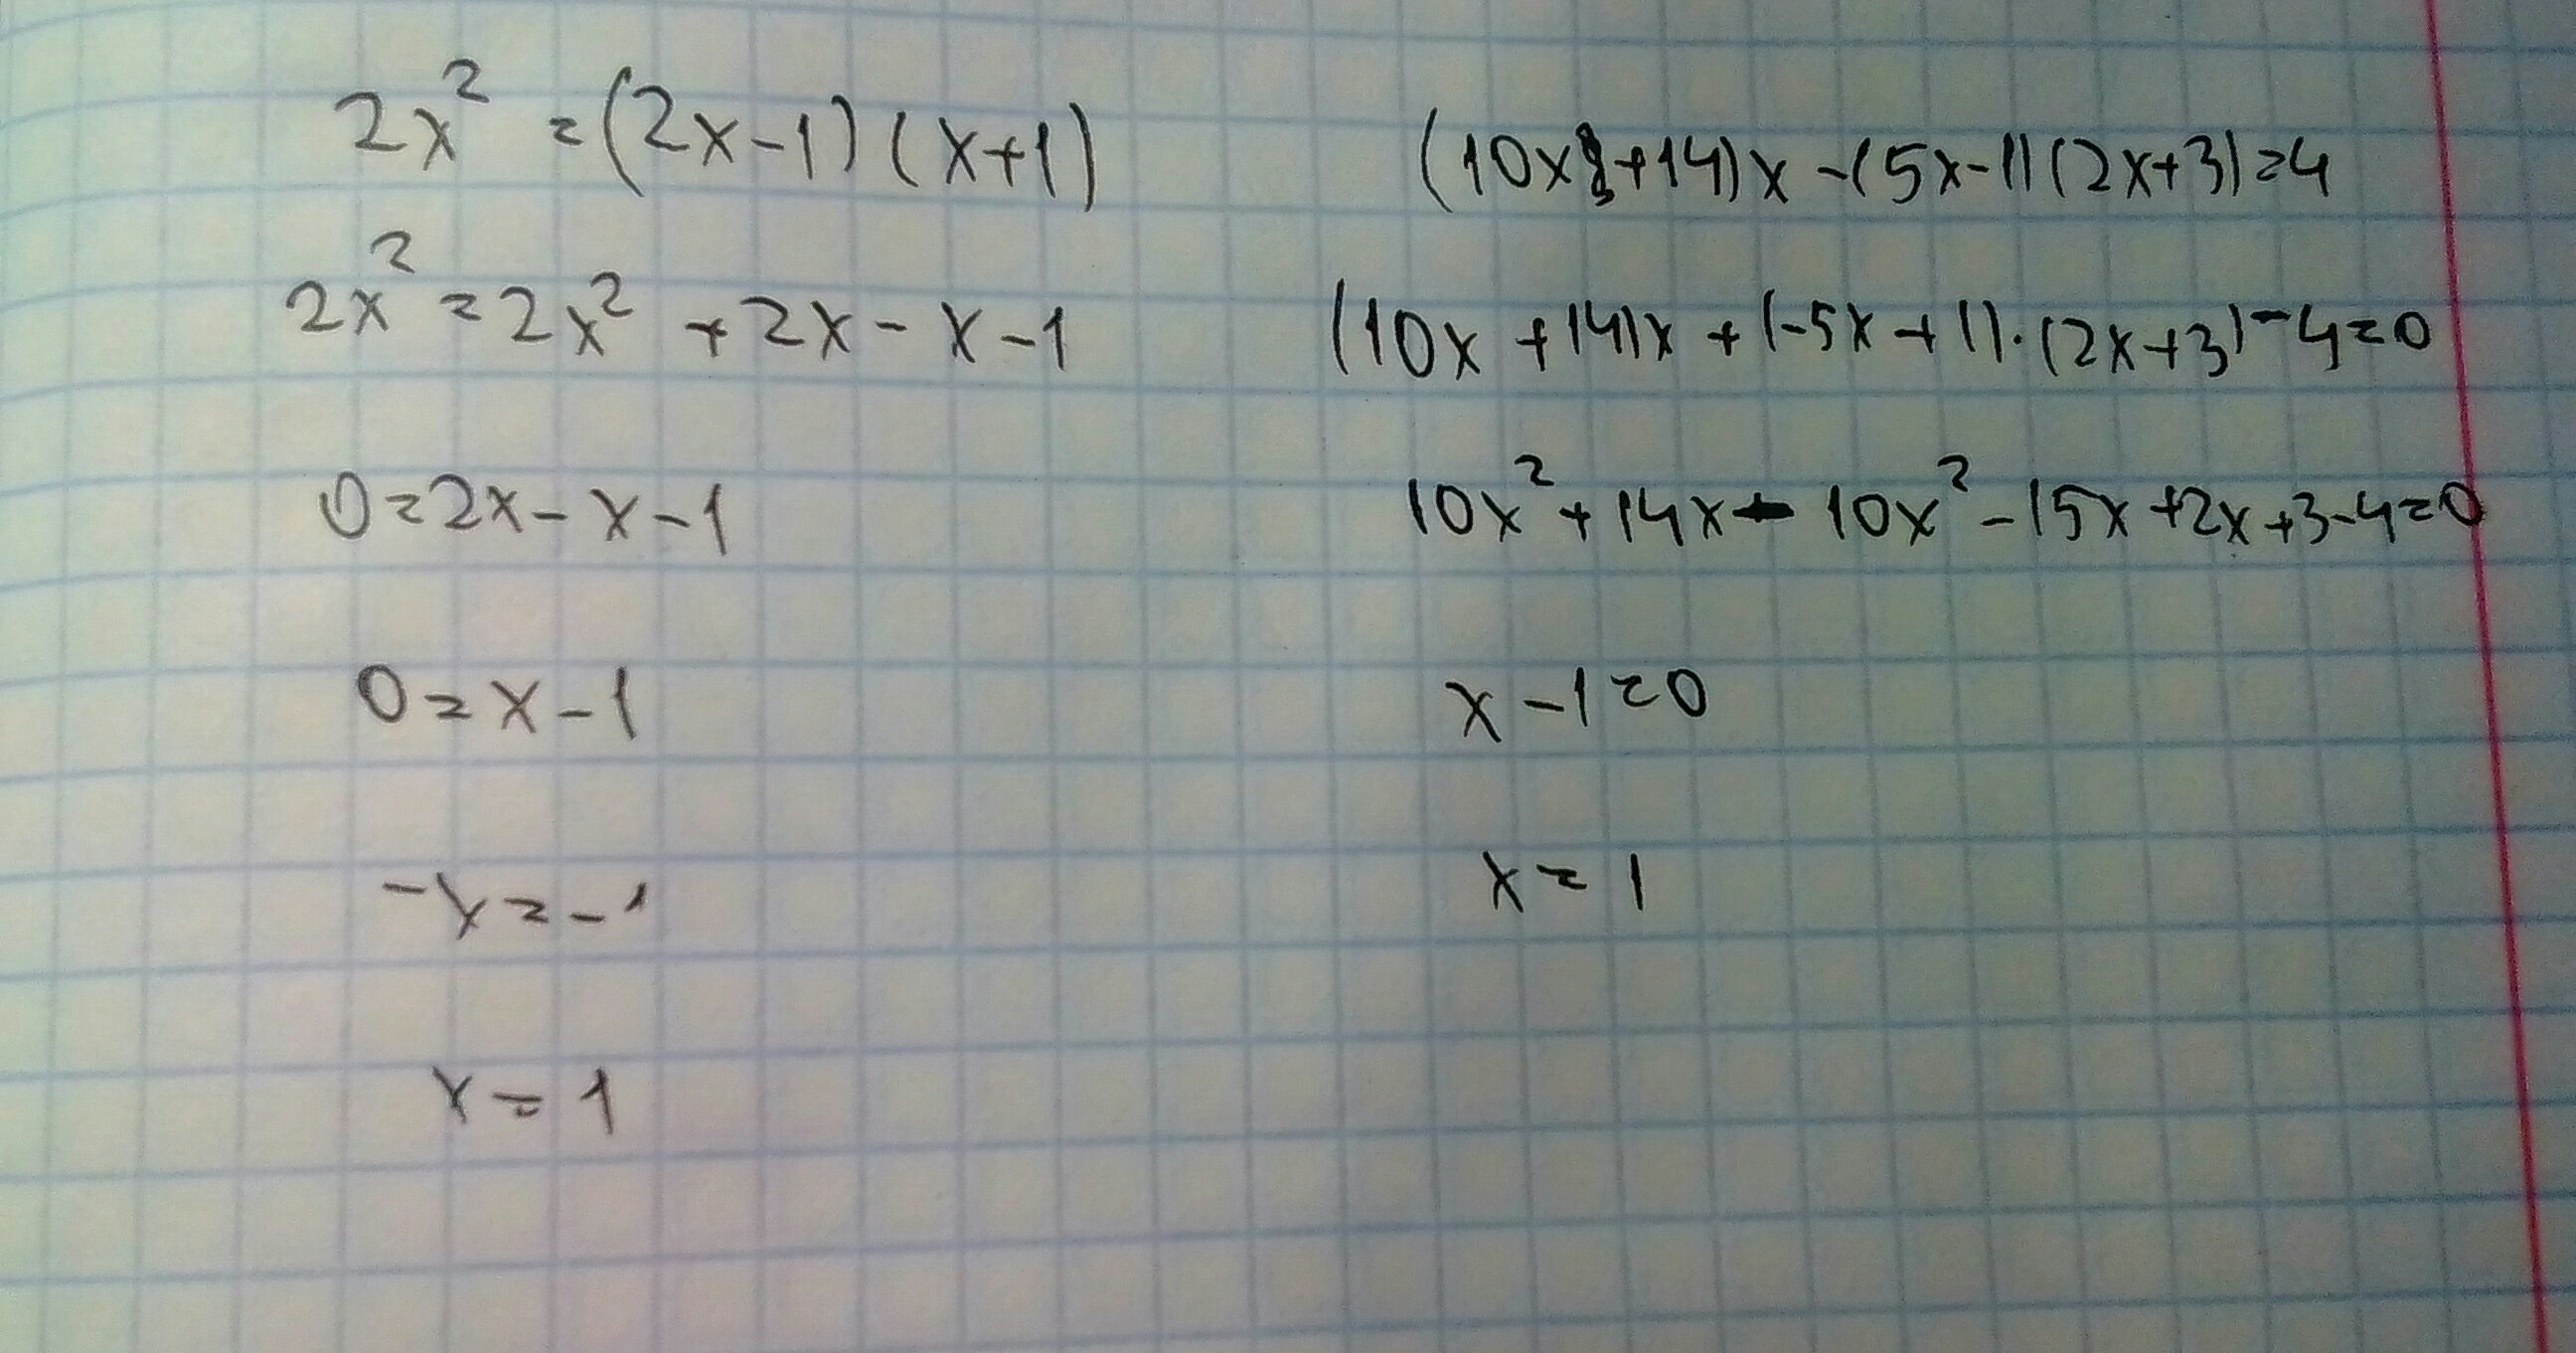 2x² = (2x-1)(x+1)
2x² = 2x² + 2x - x - 1
0 = 2x - x - 1
0 = x - 1
-x = -1
x = 1
(10x+14)x - (5x-1)(2x+3) = 4
(10x + 14)x + (-5x + 1)·(2x+3) - 4 = 0
10x² + 14x - 10x² - 15x + 2x + 3 - 4 = 0
x - 1 = 0
x = 1